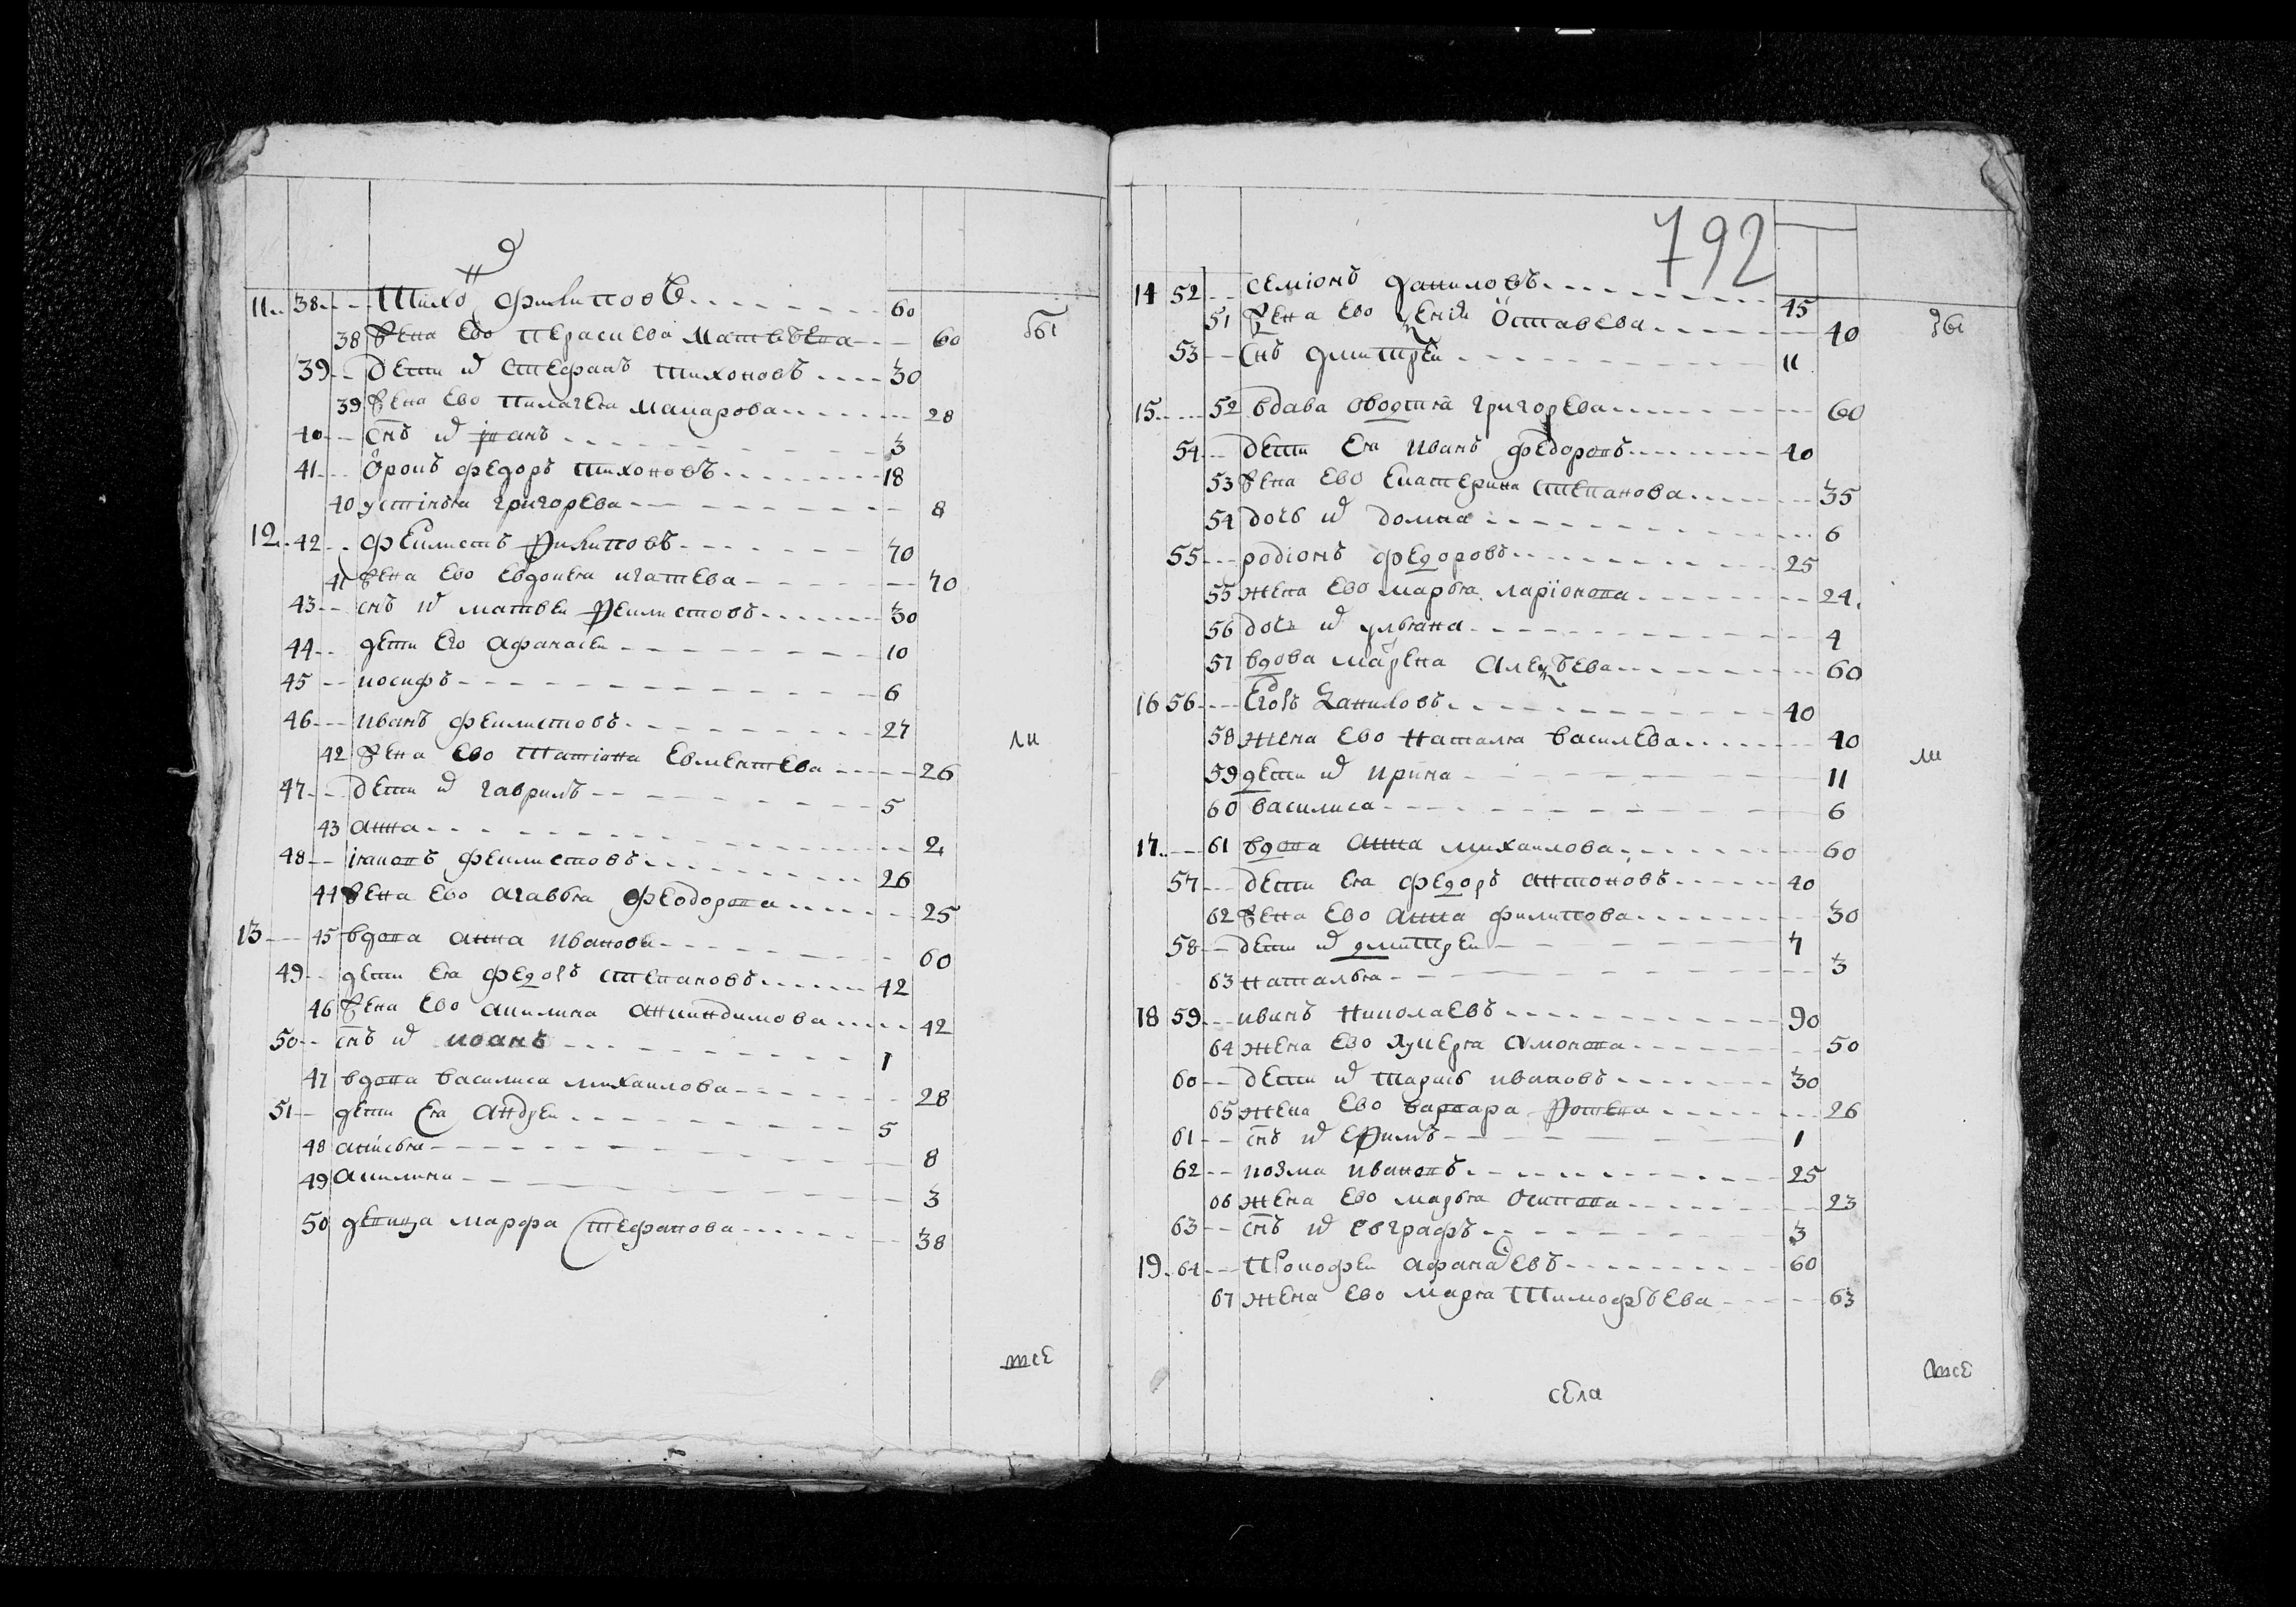 11 38 Тихонъ Филиповъ 60
38 Жена ево Герасиева Матвѣева 60 бы
39 Дети их Стефанъ Тихоновъ 30
39 Жена ево Пилагея Макарова 28
40 снъ их іванъ 3
41 Фролъ Федоръ Тихоновъ 18
40 устинья григорева 8
12 42 Феилистъ Филиповъ 70
41 Жена ево Евдокея игатева 70
43 снъ их матвеи Феилистовъ 30
44 дети его Афанасеи 10
45 иосифъ 6
46 иванъ феилистовъ 27
42 Жена ево Татіяна Еклентева 26 ли
47 Дети их гаврилъ 5
43 анна 2
48 іяковъ феилистовъ 26
44 Жена ево агавья Феодорова 25
13 45 вдова анна иванова 60
49 дети ея федоръ степановъ 42
46 Жена ево акилина 42
50 снъ их иоанъ 1
47 вдова василиса михаилова 28
51 дети ея андреи 5
48 анисья 8
49 акилина 3
50 девица марфа Стефанова 38
тсе
792
14 52 семіонъ даниловъ 45
51 Жена ево Ксенія Остаѳева 40 бы
53 Снъ дмитреи 11
15 52 вдава овдотия григорева 60
54 дети ея иванъ федоровъ 40
53 Жена ево Екатерина степанова 35
54 дочь их домна 6
55 родіонъ федоровъ 25
55 жена ево марья ларіонова 24
56 дочь их ульяна 4
57 вдова марена алексѣева 60
16 56 Егоръ Даниловъ 40
58 жена ево наталя василева 40
59 дети их ирина 11 ли
60 василиса 6
17 61 вдова анна михаилова 60
57 дети ея федоръ антоновъ 40
62 Жена ево анна филипова 30
58 дети их дмитреи 7
63 наталья 3
18 59 иванъ николаевъ 90
64 жена ево лукеря амонова 50
60 дети их тарасъ ивановъ 30
65 жена ево варвара Фотева 26
61 снъ их ефимъ 1
62 козма ивановъ 25
66 жена ево марья осипова 23
63 снъ их евграфъ 3
19 64 Прокофеи афанасевъ 60
67 жена ево маря Тимофѣева 63
тсе
села